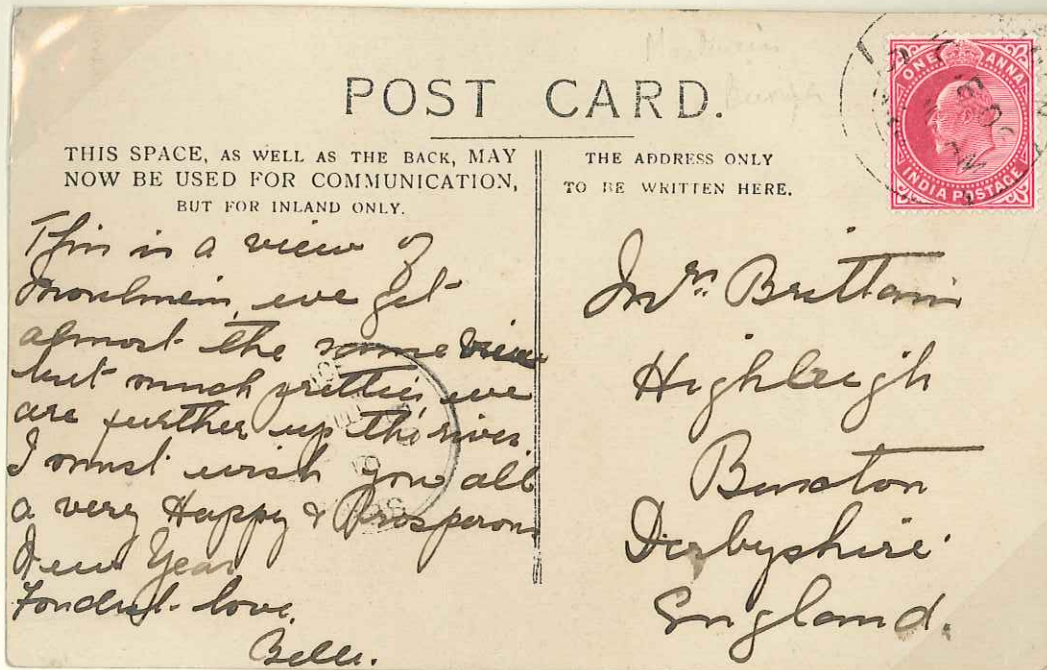 POST CARD.
THIS SPACE, AS WELL AS THE BACK, MAY
NOW BE USED FOR COMMUNICATION,
BUT FOR INLAND ONLY.
THE ADDRESS ONLY
TO BE WRITTEN HERE.
ONE ANNA
INDIA POSTAGE
This is a view of
Moulmein, we get
almost the same view
but much prettier, we
are further up the river
I must wish you all
a very Happy & Prosperous
New Year
Fondest love,
Belle.
Mrs. Brittain
Highleigh
Buxton
Derbyshire
England.